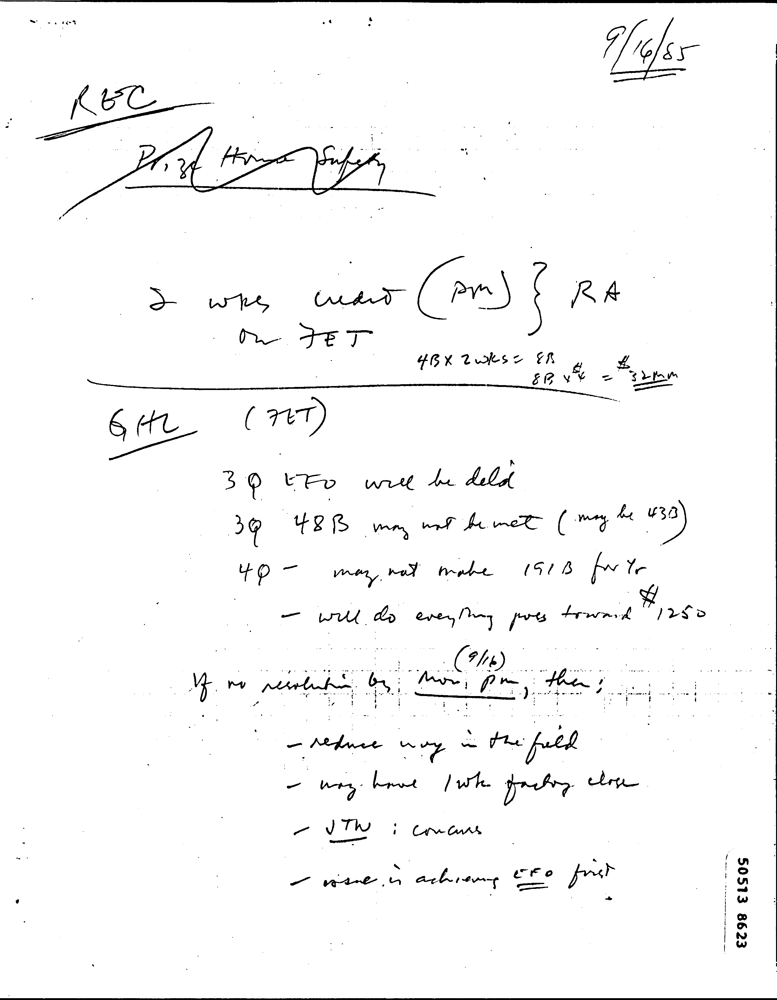 9/16/85
REC
Prize House Safety
2 wks credit (PM) } RA
on FET
4B x 2 wks = 8B
8B x $4 = $32mm
GHL (FET)
3Q EFO will be del'd
3Q 48B may not be met (may be 43B)
4Q - may not make 191B for Yr
- will do everything poss toward $1250
(9/16)
If no resolution by Mon, pm, then;
- reduce inv in the field
- may have 1 wk factory close
- JTW : concurs
- issue is achieving EFO first
50513 8623